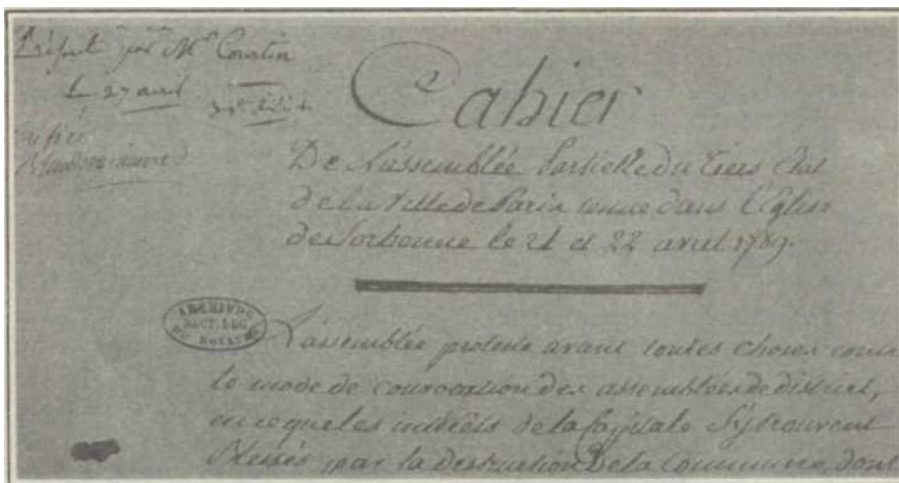 Mr Courtin
Le 27 avril
Cahier
De L'assemblée Partielle du Tiers Etat
de La Ville de Paris tenue dans L'Eglise
de Sorbonne le 21 et 22 avril 1789.
ARCHIVES
SECT. LEG
DU ROYAUME
L'assemblée proteste avant toutes choses contre
le mode de convocation des assemblées de district,
en ce que les intérêts de la Capitale s'y trouvent
Blessés par la destruction De la Commune, dont